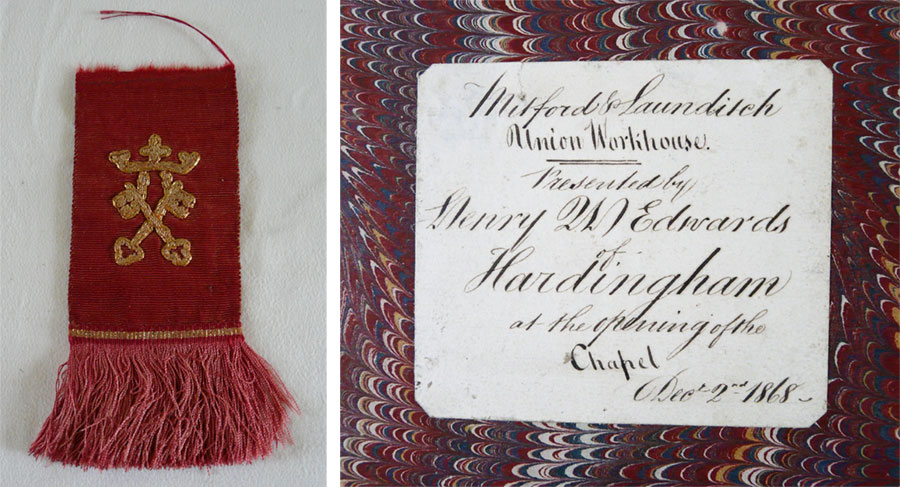 Mitford & Launditch
Union Workhouse.
Presented by
Henry W Edwards
of
Hardingham
at the opening of the
Chapel
Decr 2nd 1868